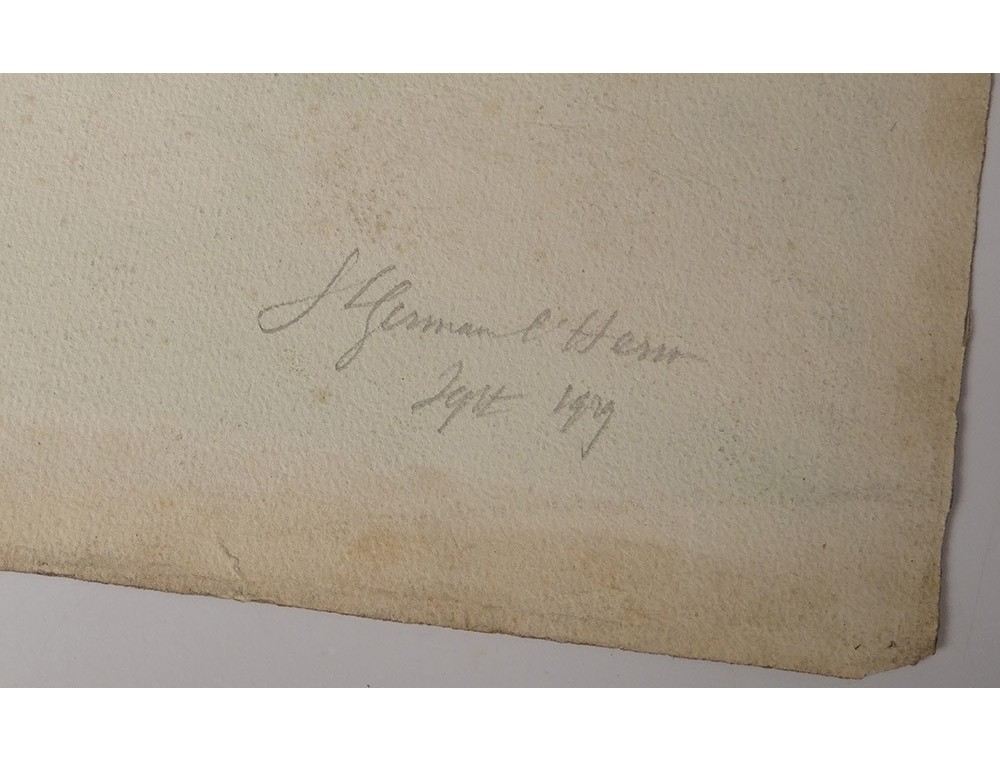 St German l'Herm
Sept 1919